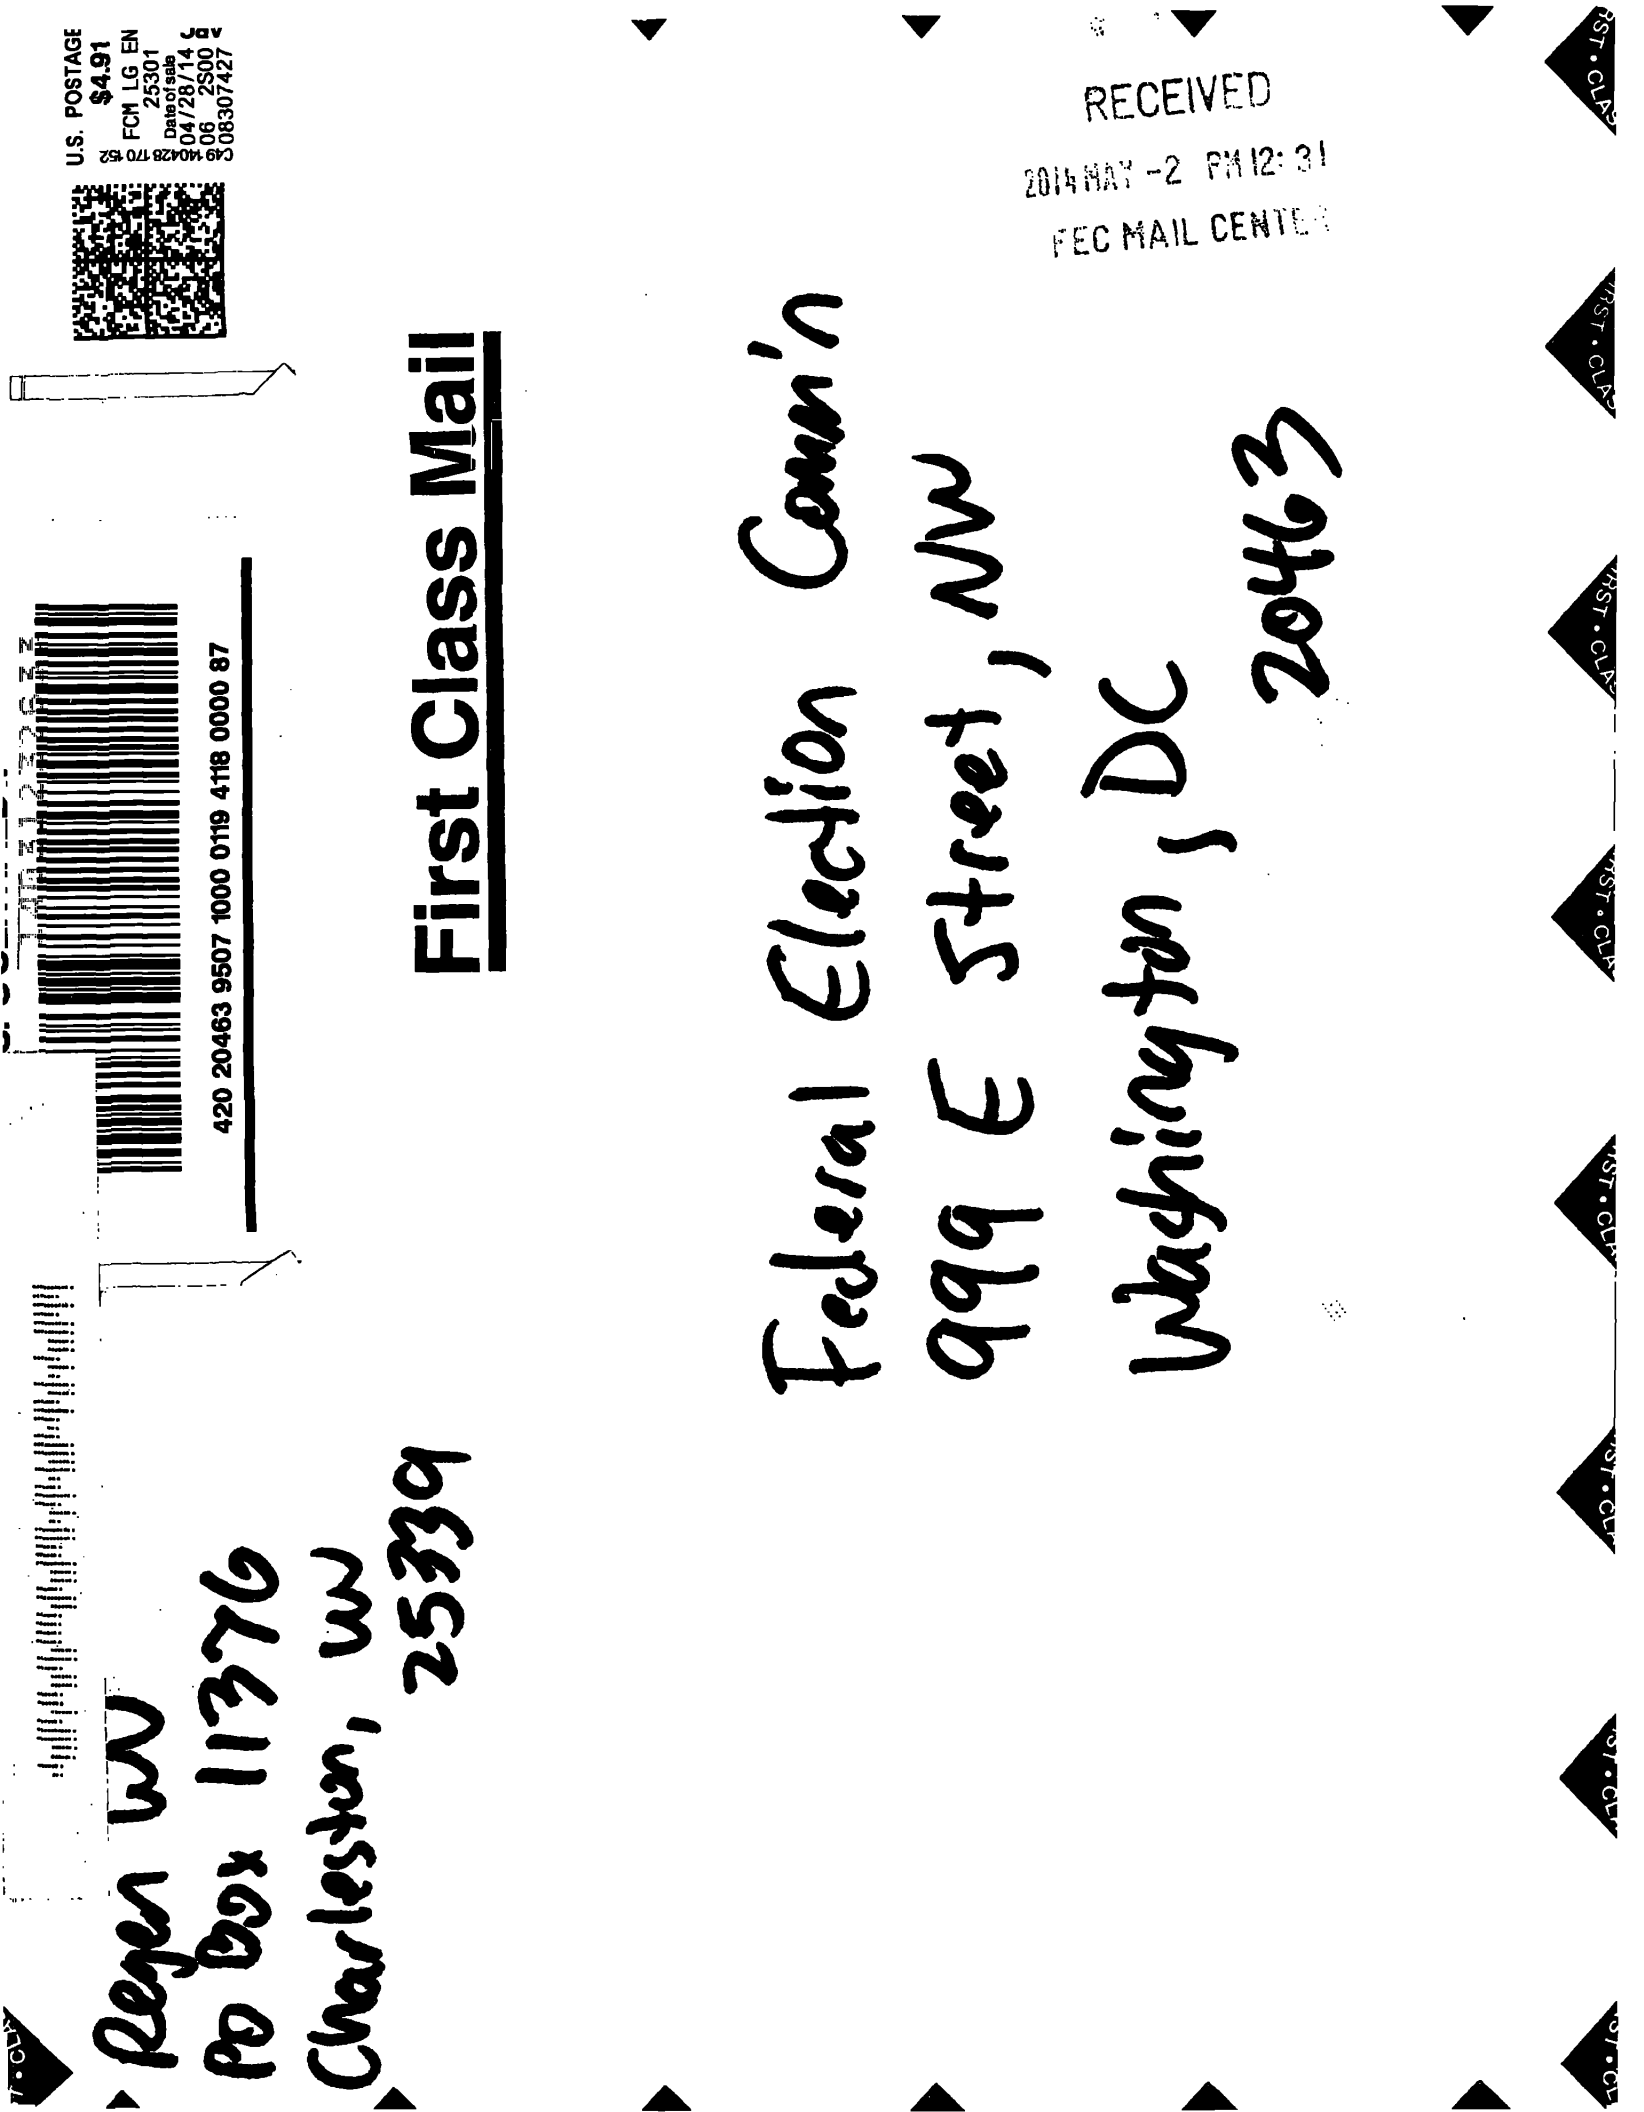 Regen WV
PO Box 11376
Charleston, WV
25339
420 20463 9507 1000 0119 4118 0000 87
U.S. POSTAGE
$4.91
FCM LG EN
25301
Date of sale
04/28/14
06 2S00
08307427
First Class Mail
Federal Election Comm'n
999 E Street, NW
Washington, DC
20463
RECEIVED
2014 MAY -2 PM 12:31
FEC MAIL CENTER